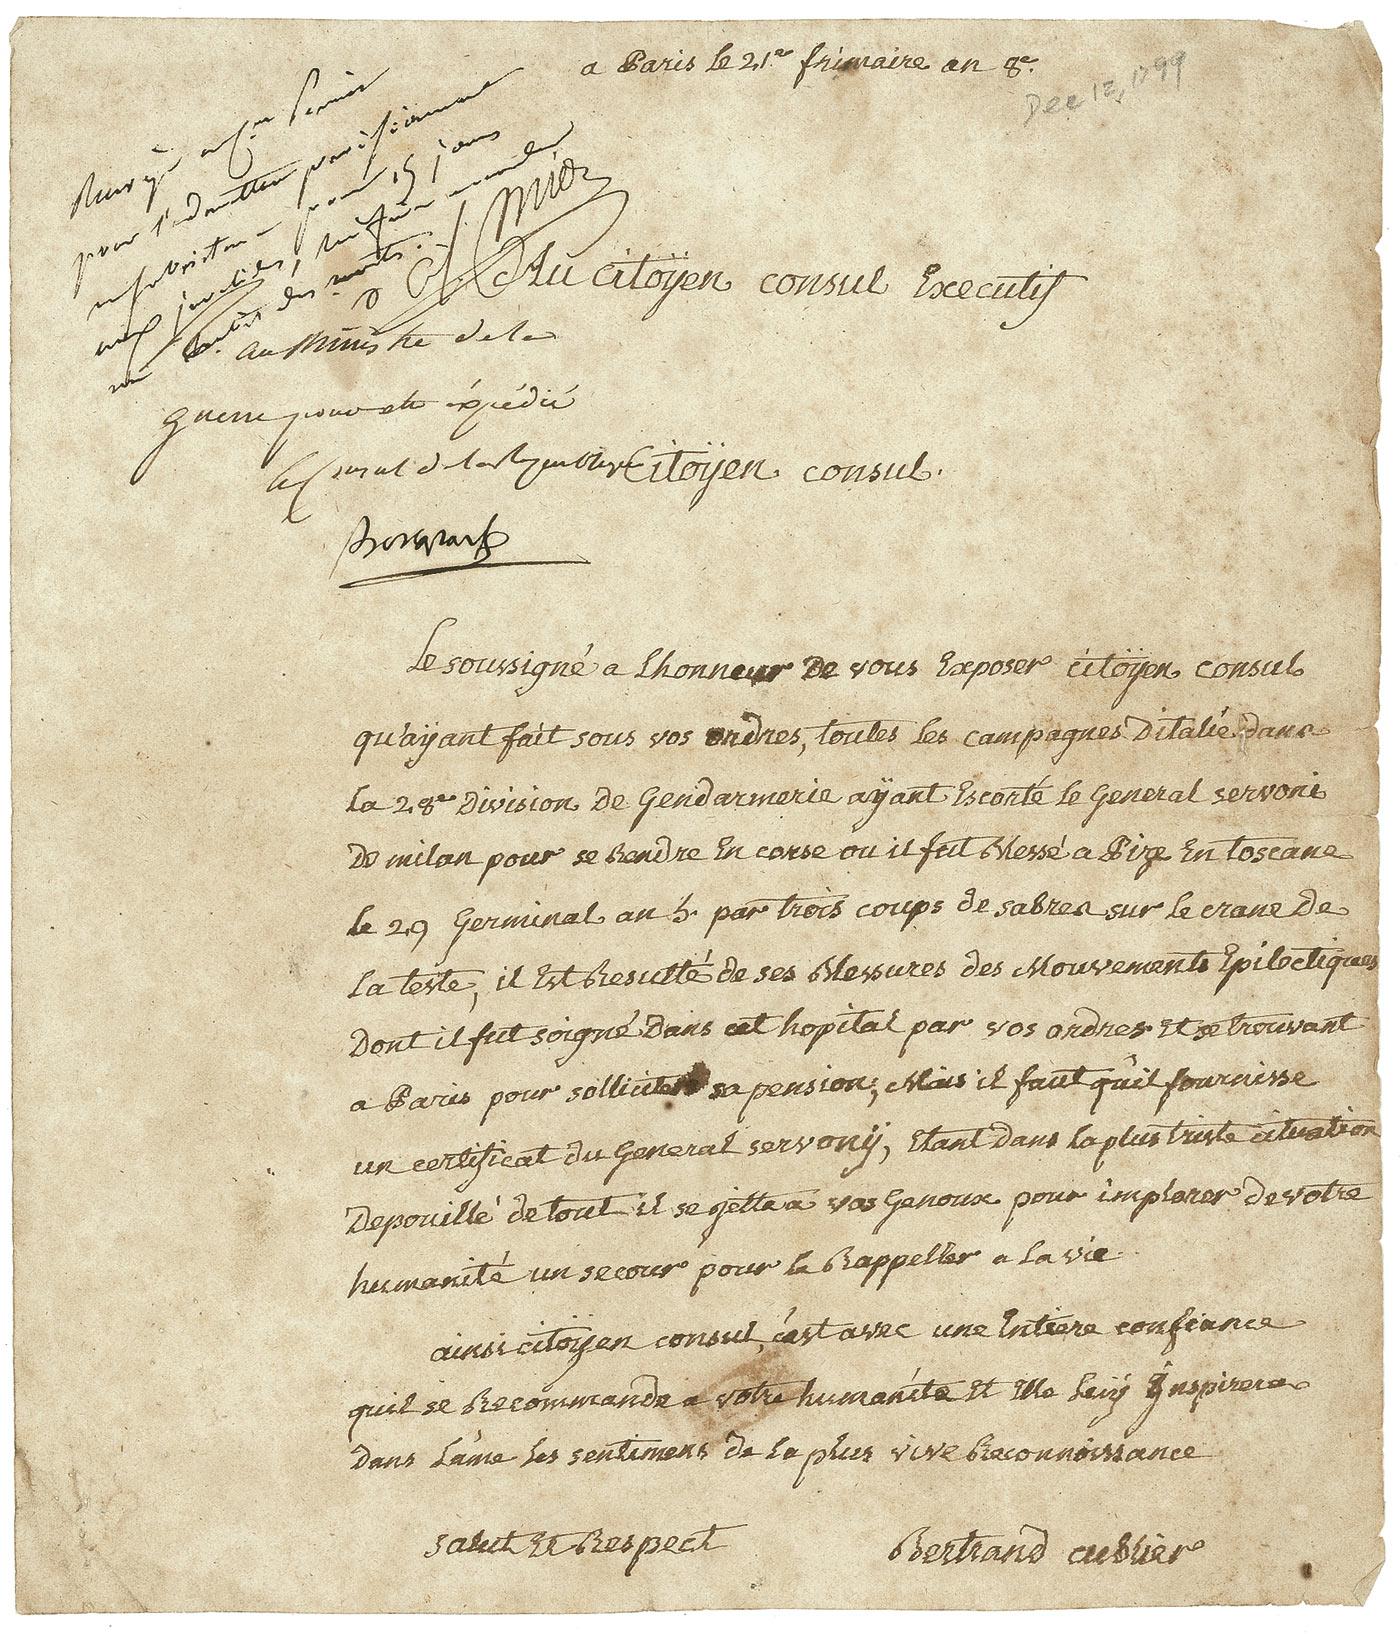 a Paris le 21.e frimaire an 8e.
Dec 12, 1799
pour l'admettre provisoirement
pour 15 jours
des
Au citoÿen consul Executif
au Ministre de la
guerre pour etre expédié
le Consul de la Republique
Bonaparte
Citoÿen consul.
Le soussigné a Lhonneur De vous Exposer citoÿen consul
qu'aÿant fait sous vos ordres, toutes les campagnes D'italie dans
la 28e Division De Gendarmerie aÿant Escorté le General servoni
De milan pour se Rendre En corse ou il fut Blessé a Pize En toscane
le 29 Germinal an 5. par trois coups de sabres sur le crane De
La teste, il Est Resulté de ses Blessures des Mouvements Epiloctiques
Dont il fut soigné Dans cet hopital par vos ordres Et se trouvant
a Paris pour solliciter sa pension, Mais il faut qu'il fournisse
un certificat du General servonÿ, Etant Dans la plus triste cituation
Depouillé de tout il se jette a vos Genoux pour implorer De votre
humanité un secour pour le Rappeller a la vie
ainsi citoÿen consul, c'est avec une Entiere confiance
quil se Recommande a votre humanité Et Elle luÿ Ynspirera
Dans L'ame les sentimens de la plus vive Reconnoissance
Salut Et Respect
Bertrand cublier